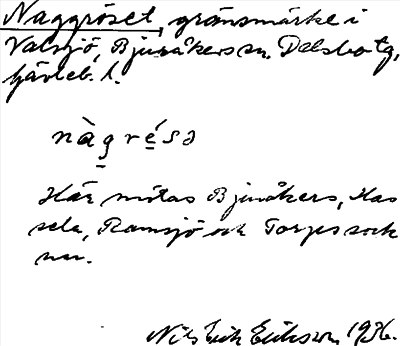 Naggröset, gränsmärke i
Valsjö, Bjuråkers sn. Delsbo tg,
Hälsl. l.
nàg̲ ré̲sə
Här mötas Bjuråkers, Has
sela, Ramsjö och Torps sock
nar.
Nils Erik Erikson 1936.